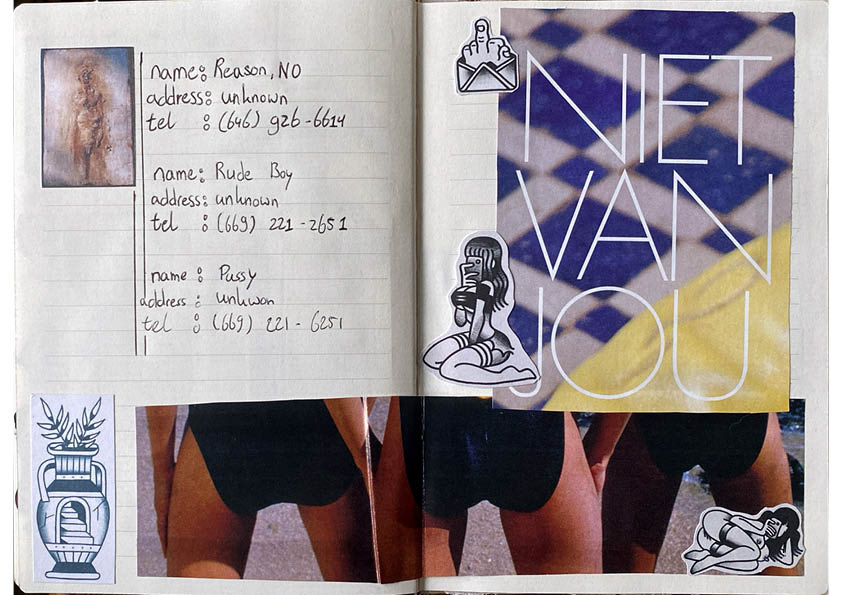 name: Reason, NO
address: unknown
tel : (646) 926-6614
name: Rude Boy
address: unknown
tel : (669) 221-2651
name : Pussy
address : unkwon
tel : (669) 221-6251
NIET
VAN
JOU